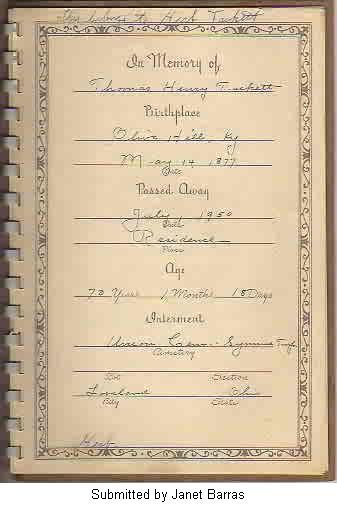 This belongs to Herb Tackett
In Memory of
Thomas Henry Tackett
Birthplace
Olive Hill, Ky
May 14, 1877
Date
Passed Away
July, 1950
Date
Residence
Place
Age
73 Years 1 Months 18 Days
Interment
Union Cem.
Cemetery
Lot Section
Loveland Ohio
City State
Herb
Submitted by Janet Barras